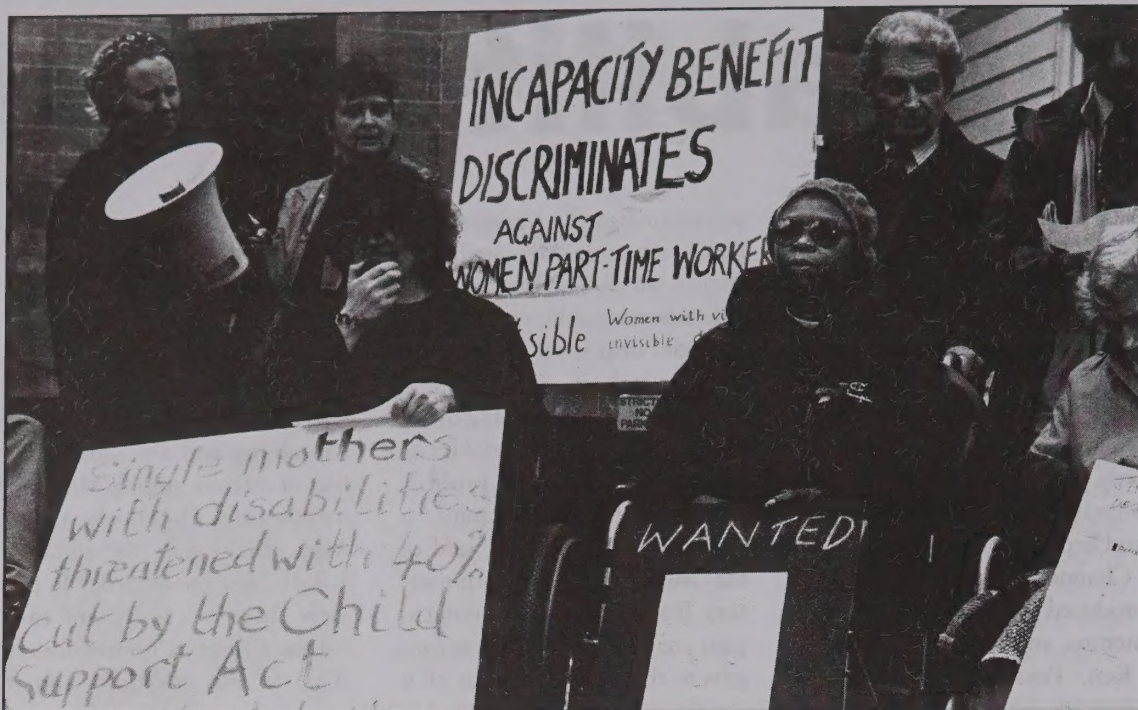 INCAPACITY BENEFIT
DISCRIMINATES
AGAINST
WOMEN PART-TIME WORKER
Women with
invisible
Single mothers
with disabilities
threatened with 40%
cut by the Child
Support Act
STRICTLY
NO
PARK
WANTED!